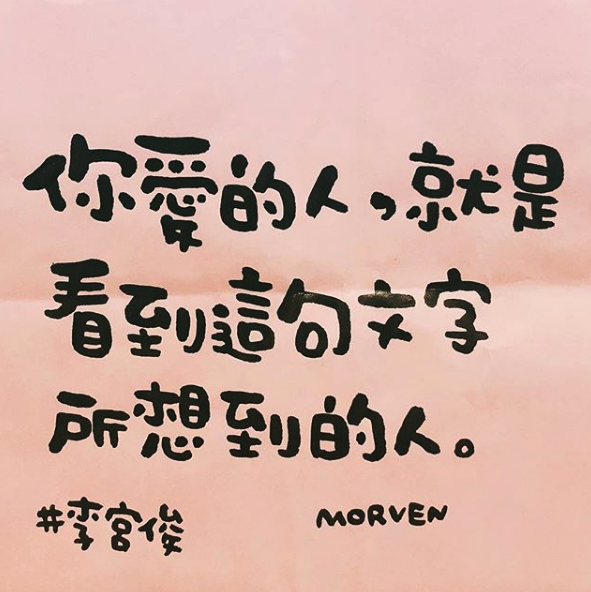 你愛的人,就是
看到這句文字
所想到的人。
#李宮俊 MORVEN